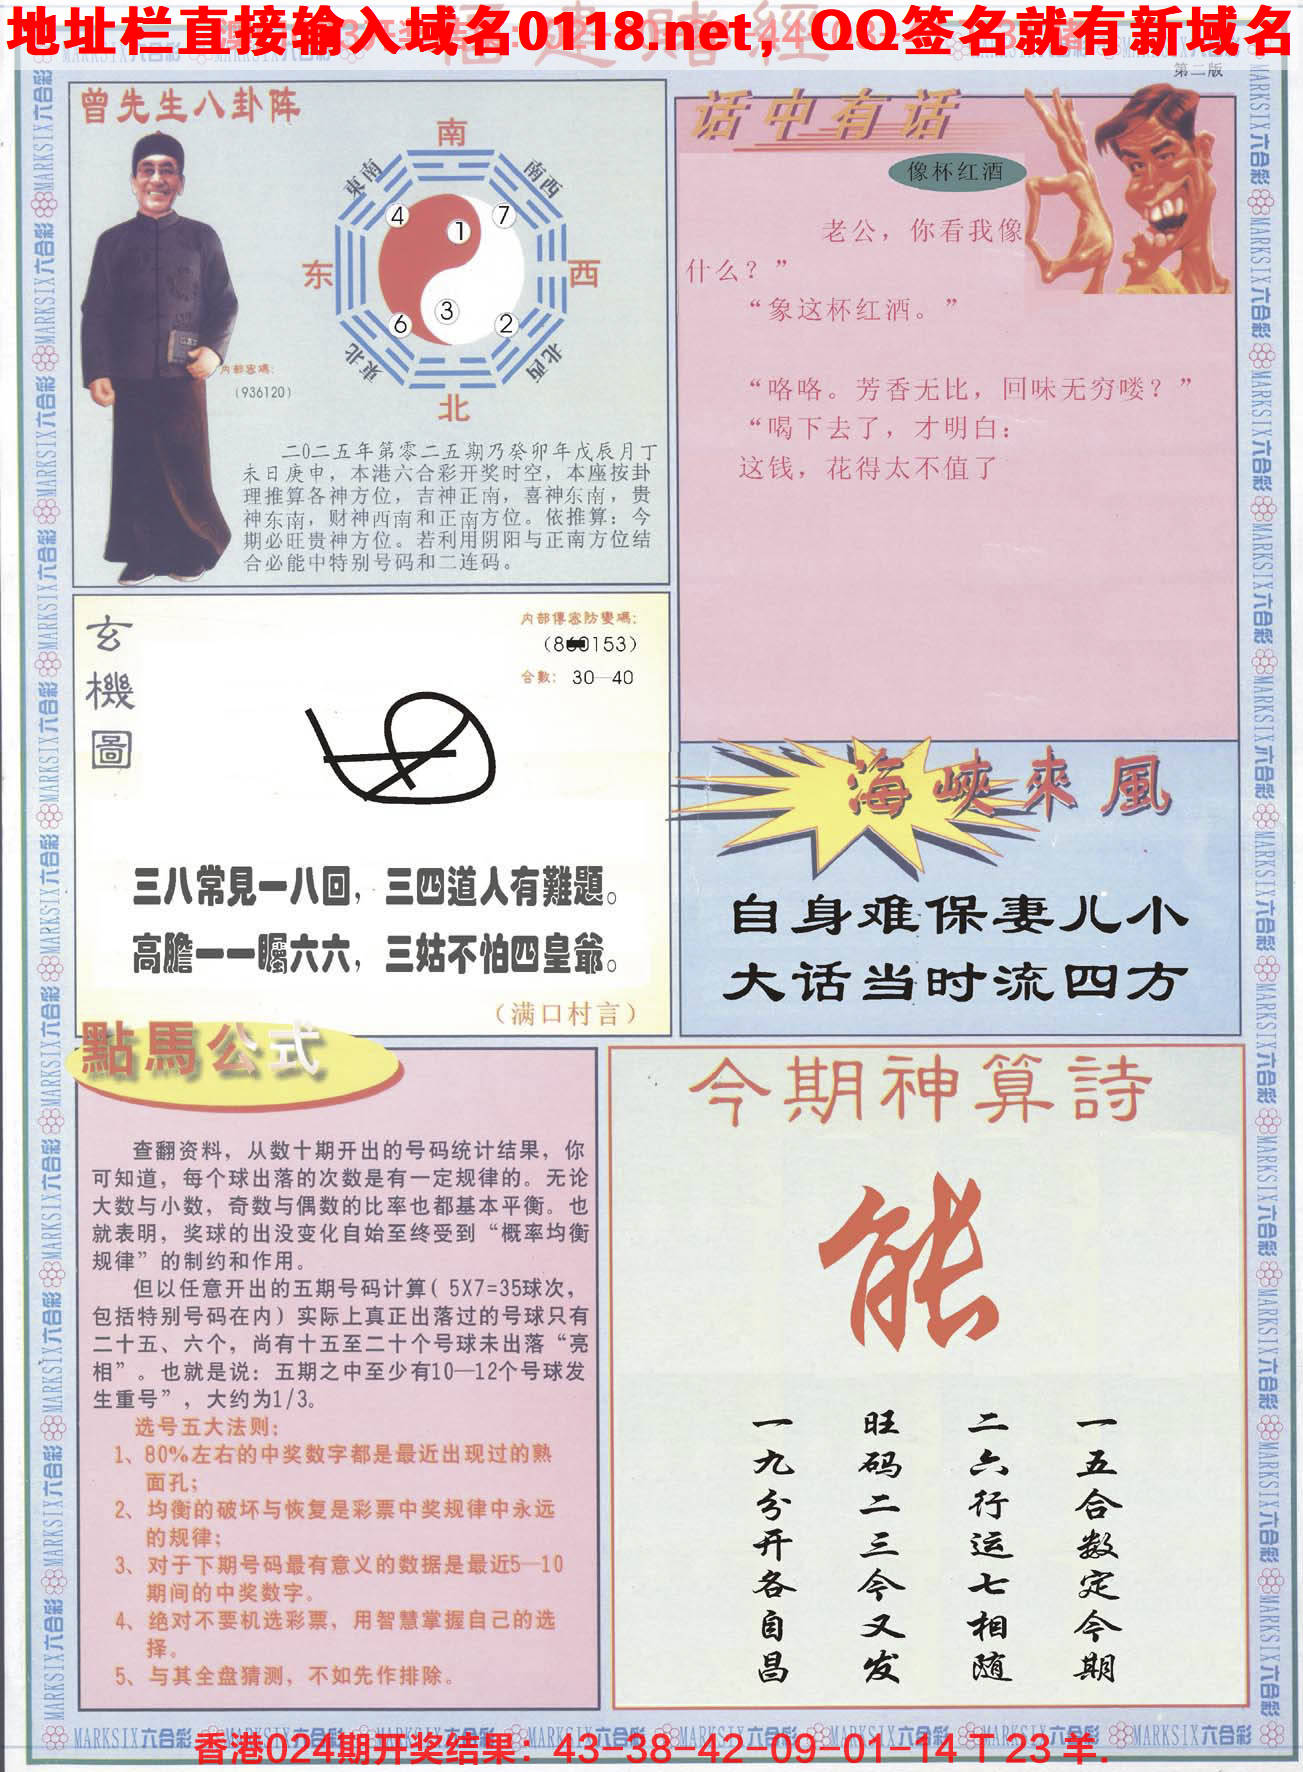 地址栏直接输入域名0118.net，QQ签名就有新域名
第二版
曾先生八卦阵
南
東南
南西
4
7
1
东
西
3
6
2
東北
北西
北
内部密碼：
（936120）
二0二五年第零二五期乃癸卯年戊辰月丁
未日庚申，本港六合彩开奖时空，本座按卦
理推算各神方位，吉神正南，喜神东南，贵
神东南，财神西南和正南方位。依推算：今
期必旺贵神方位。若利用阴阳与正南方位结
合必能中特别号码和二连码。
话中有话
像杯红酒
老公，你看我像
什么？”
“象这杯红酒。”
“咯咯。芳香无比，回味无穷喽？”
“喝下去了，才明白：
这钱，花得太不值了
玄機圖
内部傳密防變碼：
合數： 30—40
三八常見一八回，三四道人有難題。
高膽一一矚六六，三姑不怕四皇爺。
（满口村言）
海峽來風
自身难保妻儿小
大话当时流四方
點馬公式
查翻资料，从数十期开出的号码统计结果，你
可知道，每个球出落的次数是有一定规律的。无论
大数与小数，奇数与偶数的比率也都基本平衡。也
就表明，奖球的出没变化自始至终受到“概率均衡
规律”的制约和作用。
但以任意开出的五期号码计算（5X7=35球次，
包括特别号码在内）实际上真正出落过的号球只有
二十五、六个，尚有十五至二十个号球未出落“亮
相”。也就是说：五期之中至少有10—12个号球发
生重号”，大约为1/3。
选号五大法则：
1、80%左右的中奖数字都是最近出现过的熟
面孔；
2、均衡的破坏与恢复是彩票中奖规律中永远
的规律；
3、对于下期号码最有意义的数据是最近5—10
期间的中奖数字。
4、绝对不要机选彩票，用智慧掌握自己的选
择。
5、与其全盘猜测，不如先作排除。
今期神算詩
能
一五合数定今期
二六行运七相随
旺码二三今又发
一九分开各自昌
MARKSIX六合彩
香港024期开奖结果：43-38-42-09-01-14 T 23 羊.